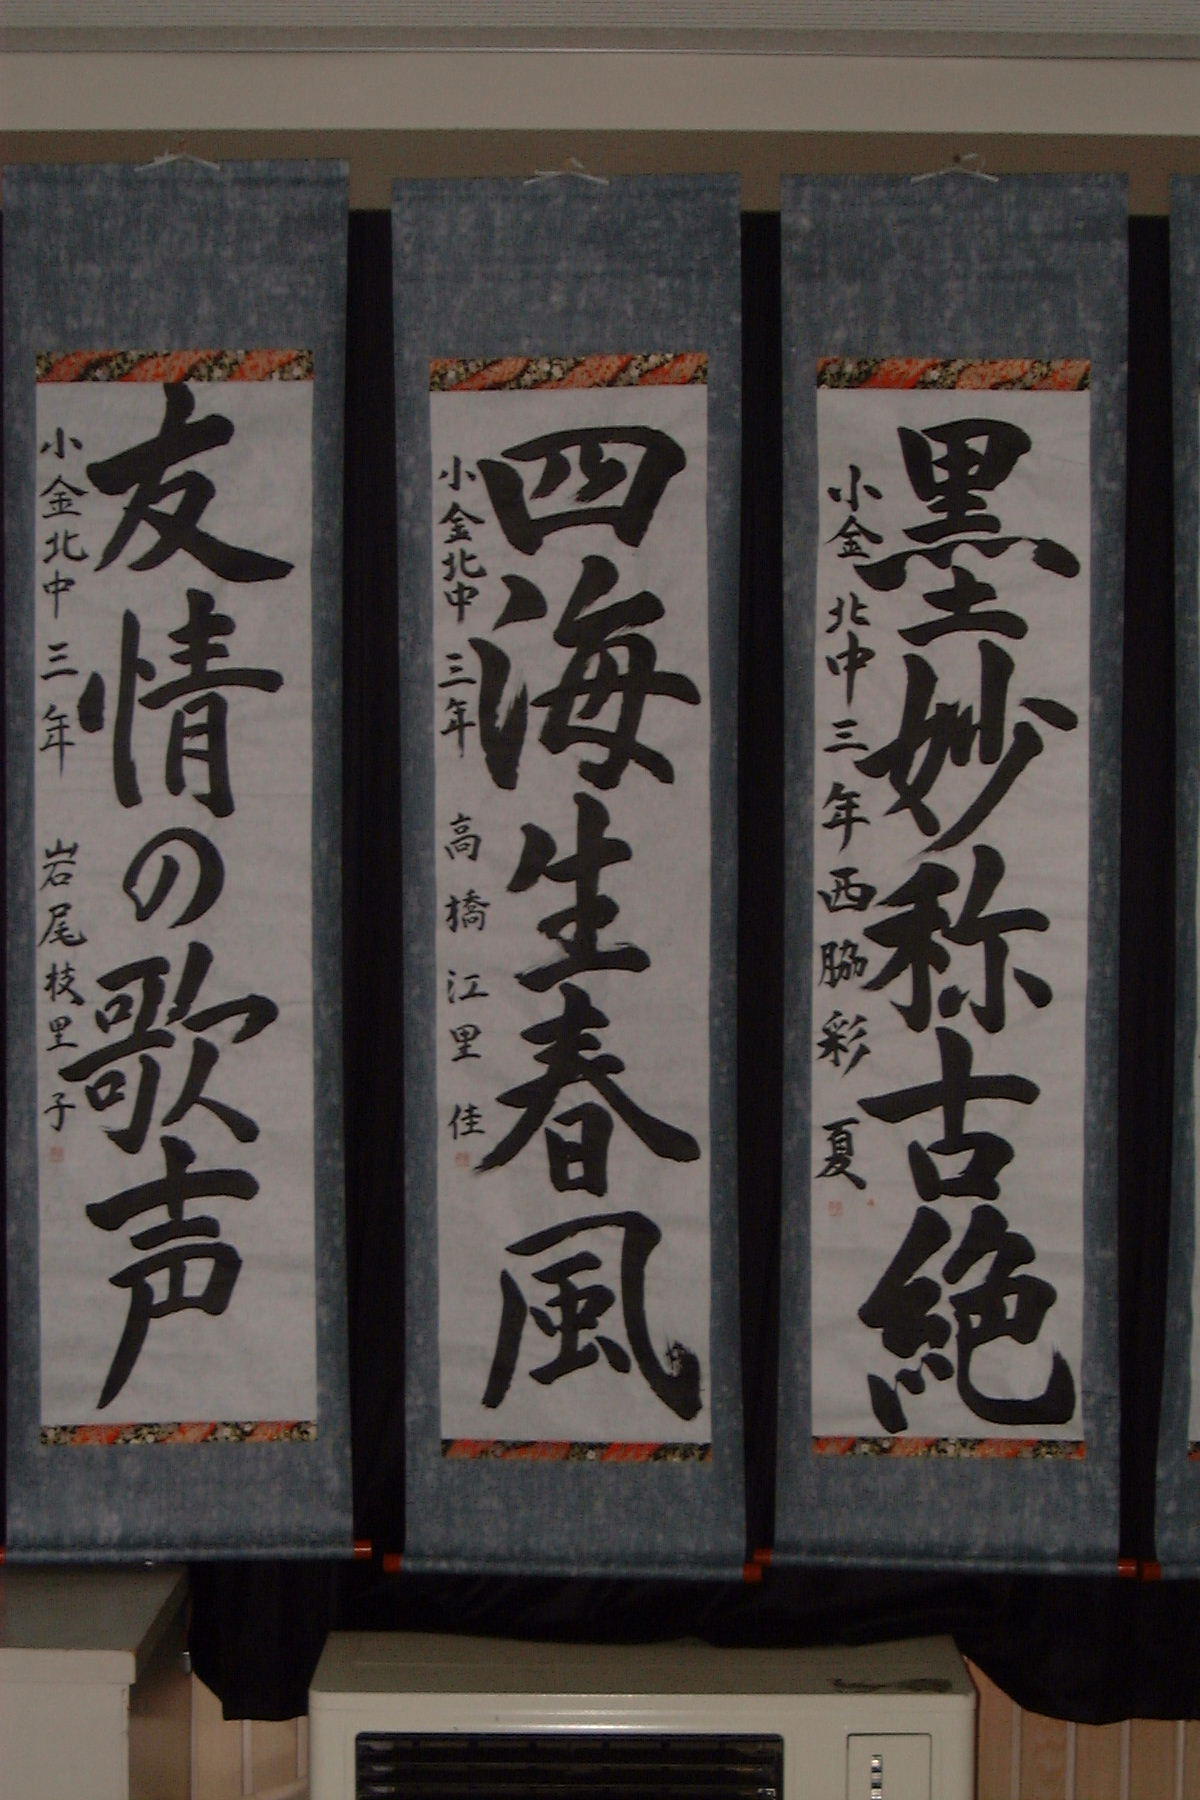 墨妙称古絶
小金北中三年西脇彩夏
四海生春風
小金北中三年 高橋江里佳
友情の歌声
小金北中三年 岩尾枝里子